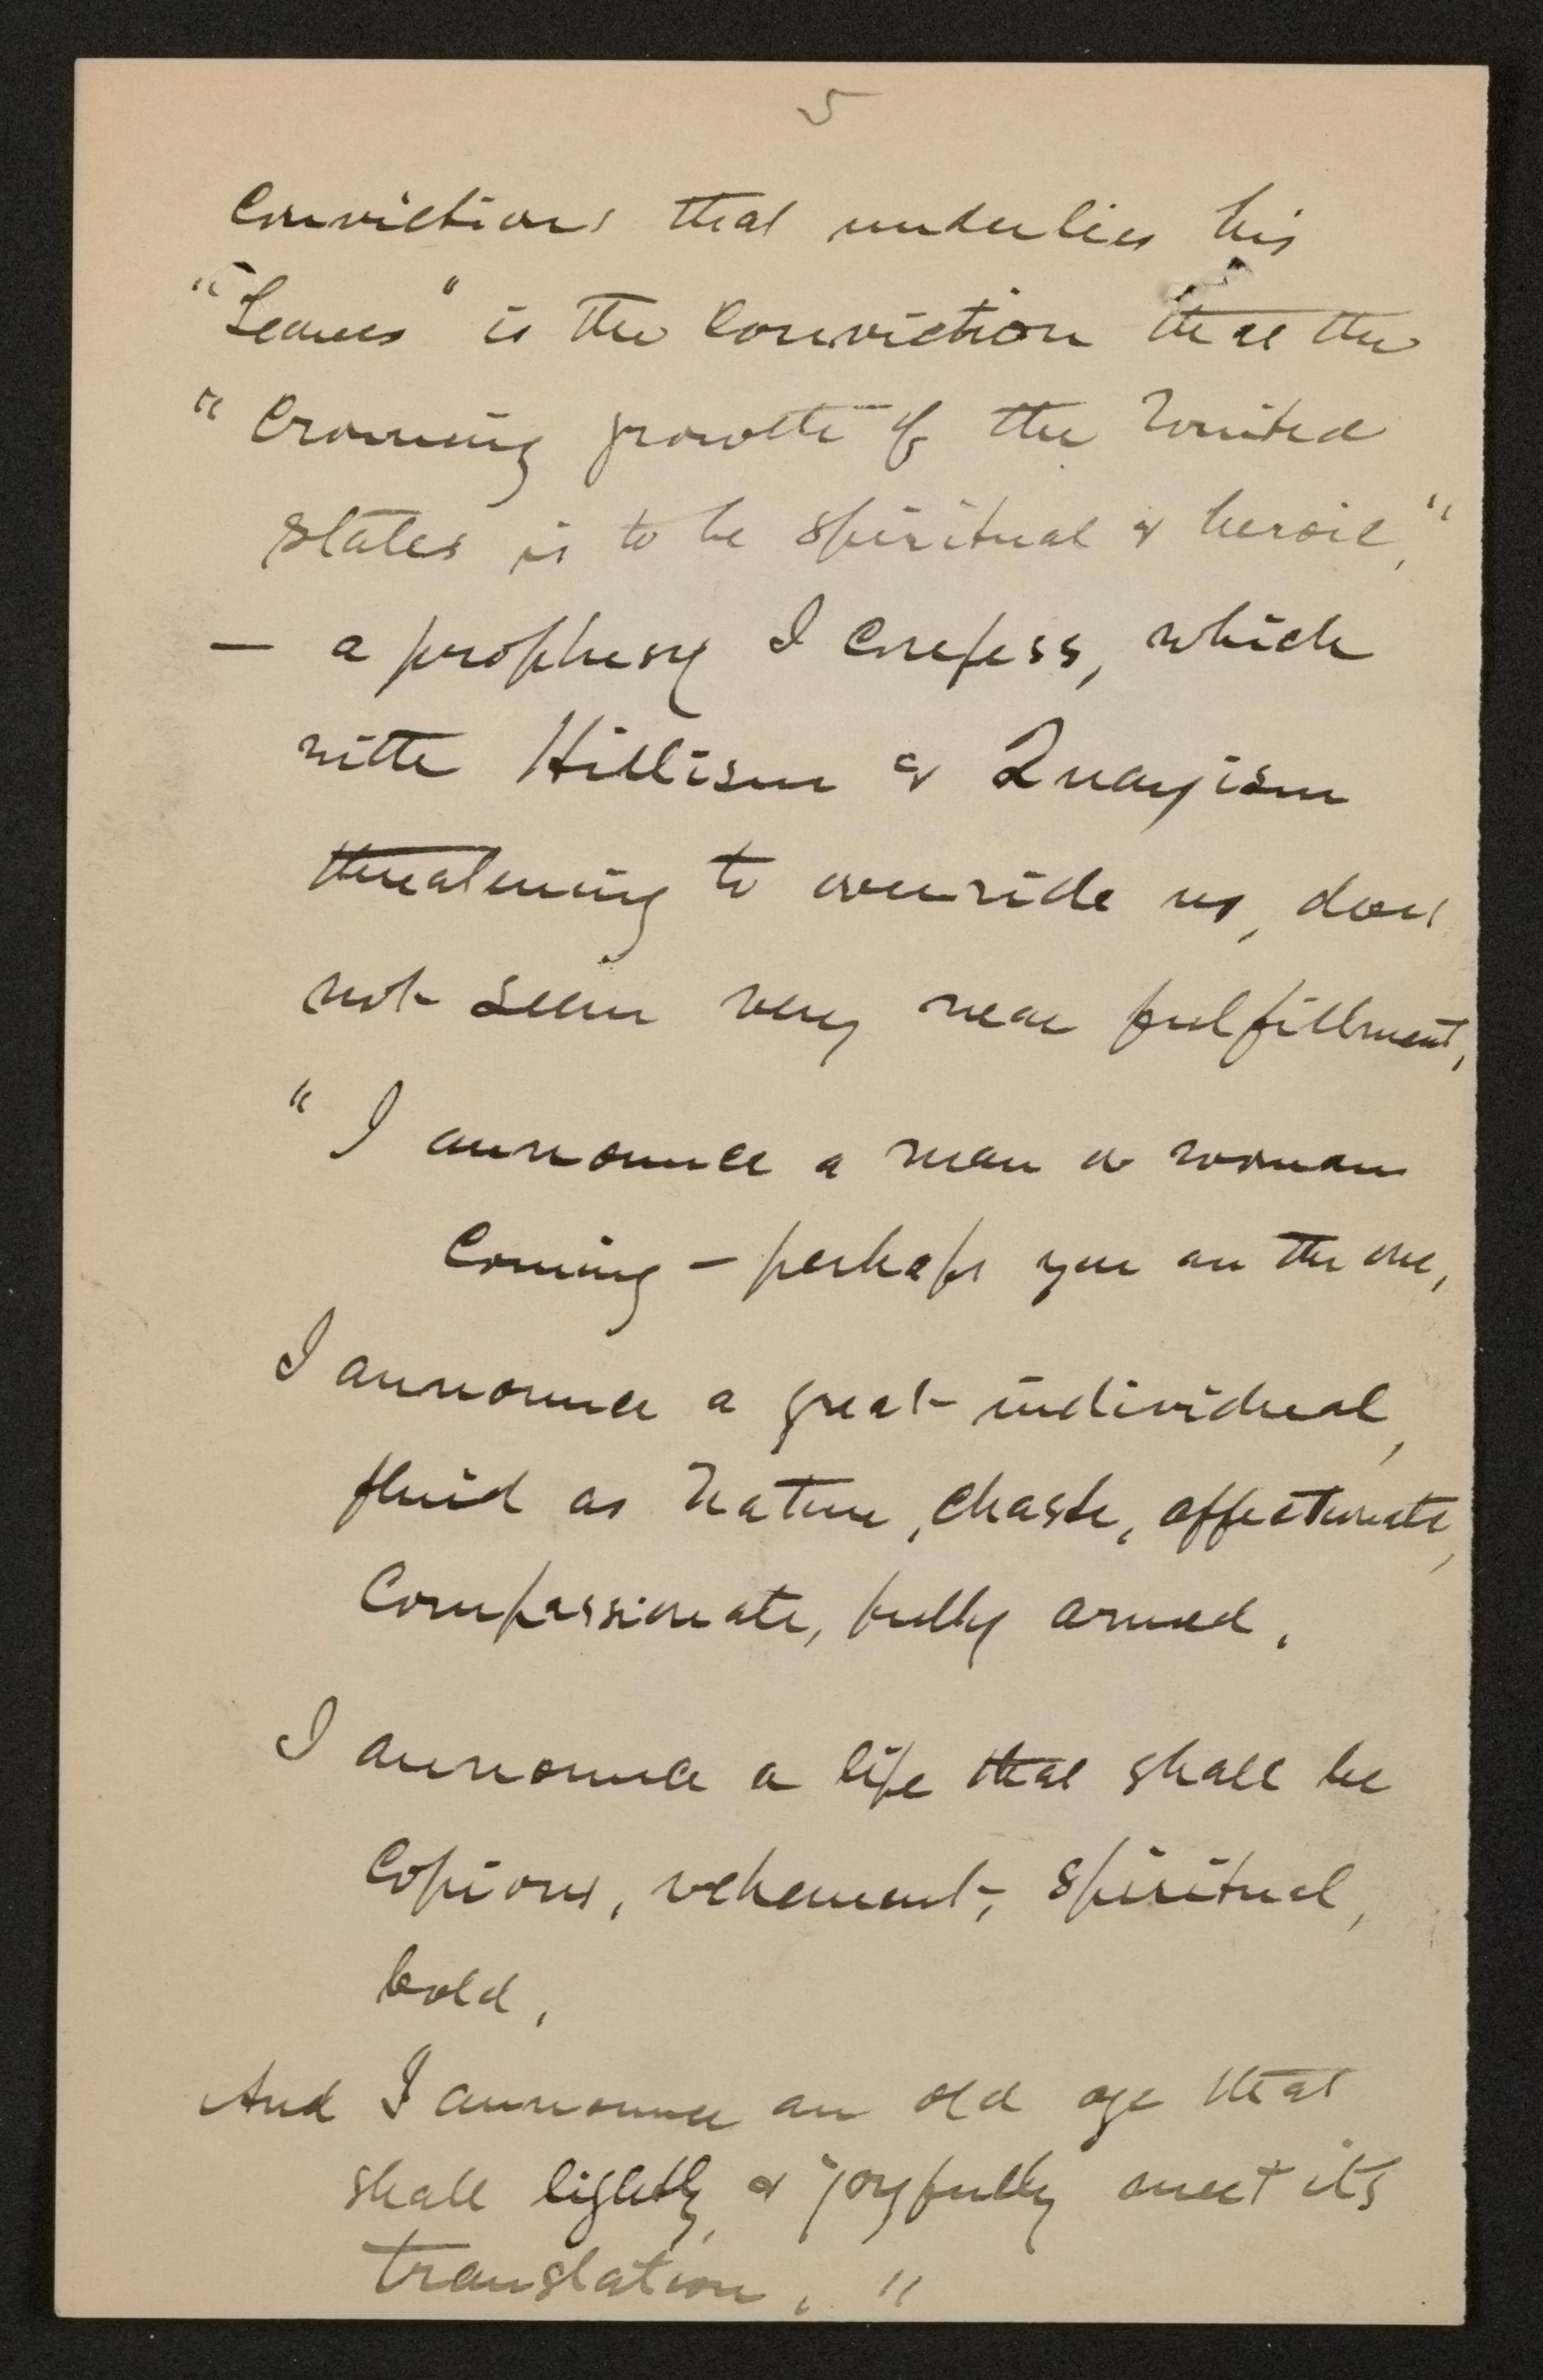 5
convictions that underlies his
"Leaves" is the conviction that the
"crowning growth of the United
States is to be spiritual & heroic,"
— a prophesy I confess, which
with Hillism & Quayism
threatening to override us, does
not seem very near fulfillment,
"I announce a man or woman
coming — perhaps you are the one,
I announce a great individual,
fluid as Nature, chaste, affectionate,
compassionate, fully armed.
I announce a life that shall be
copious, vehement, spiritual,
bold,
And I announce an old age that
shall lightly & joyfully meet its
translation. "